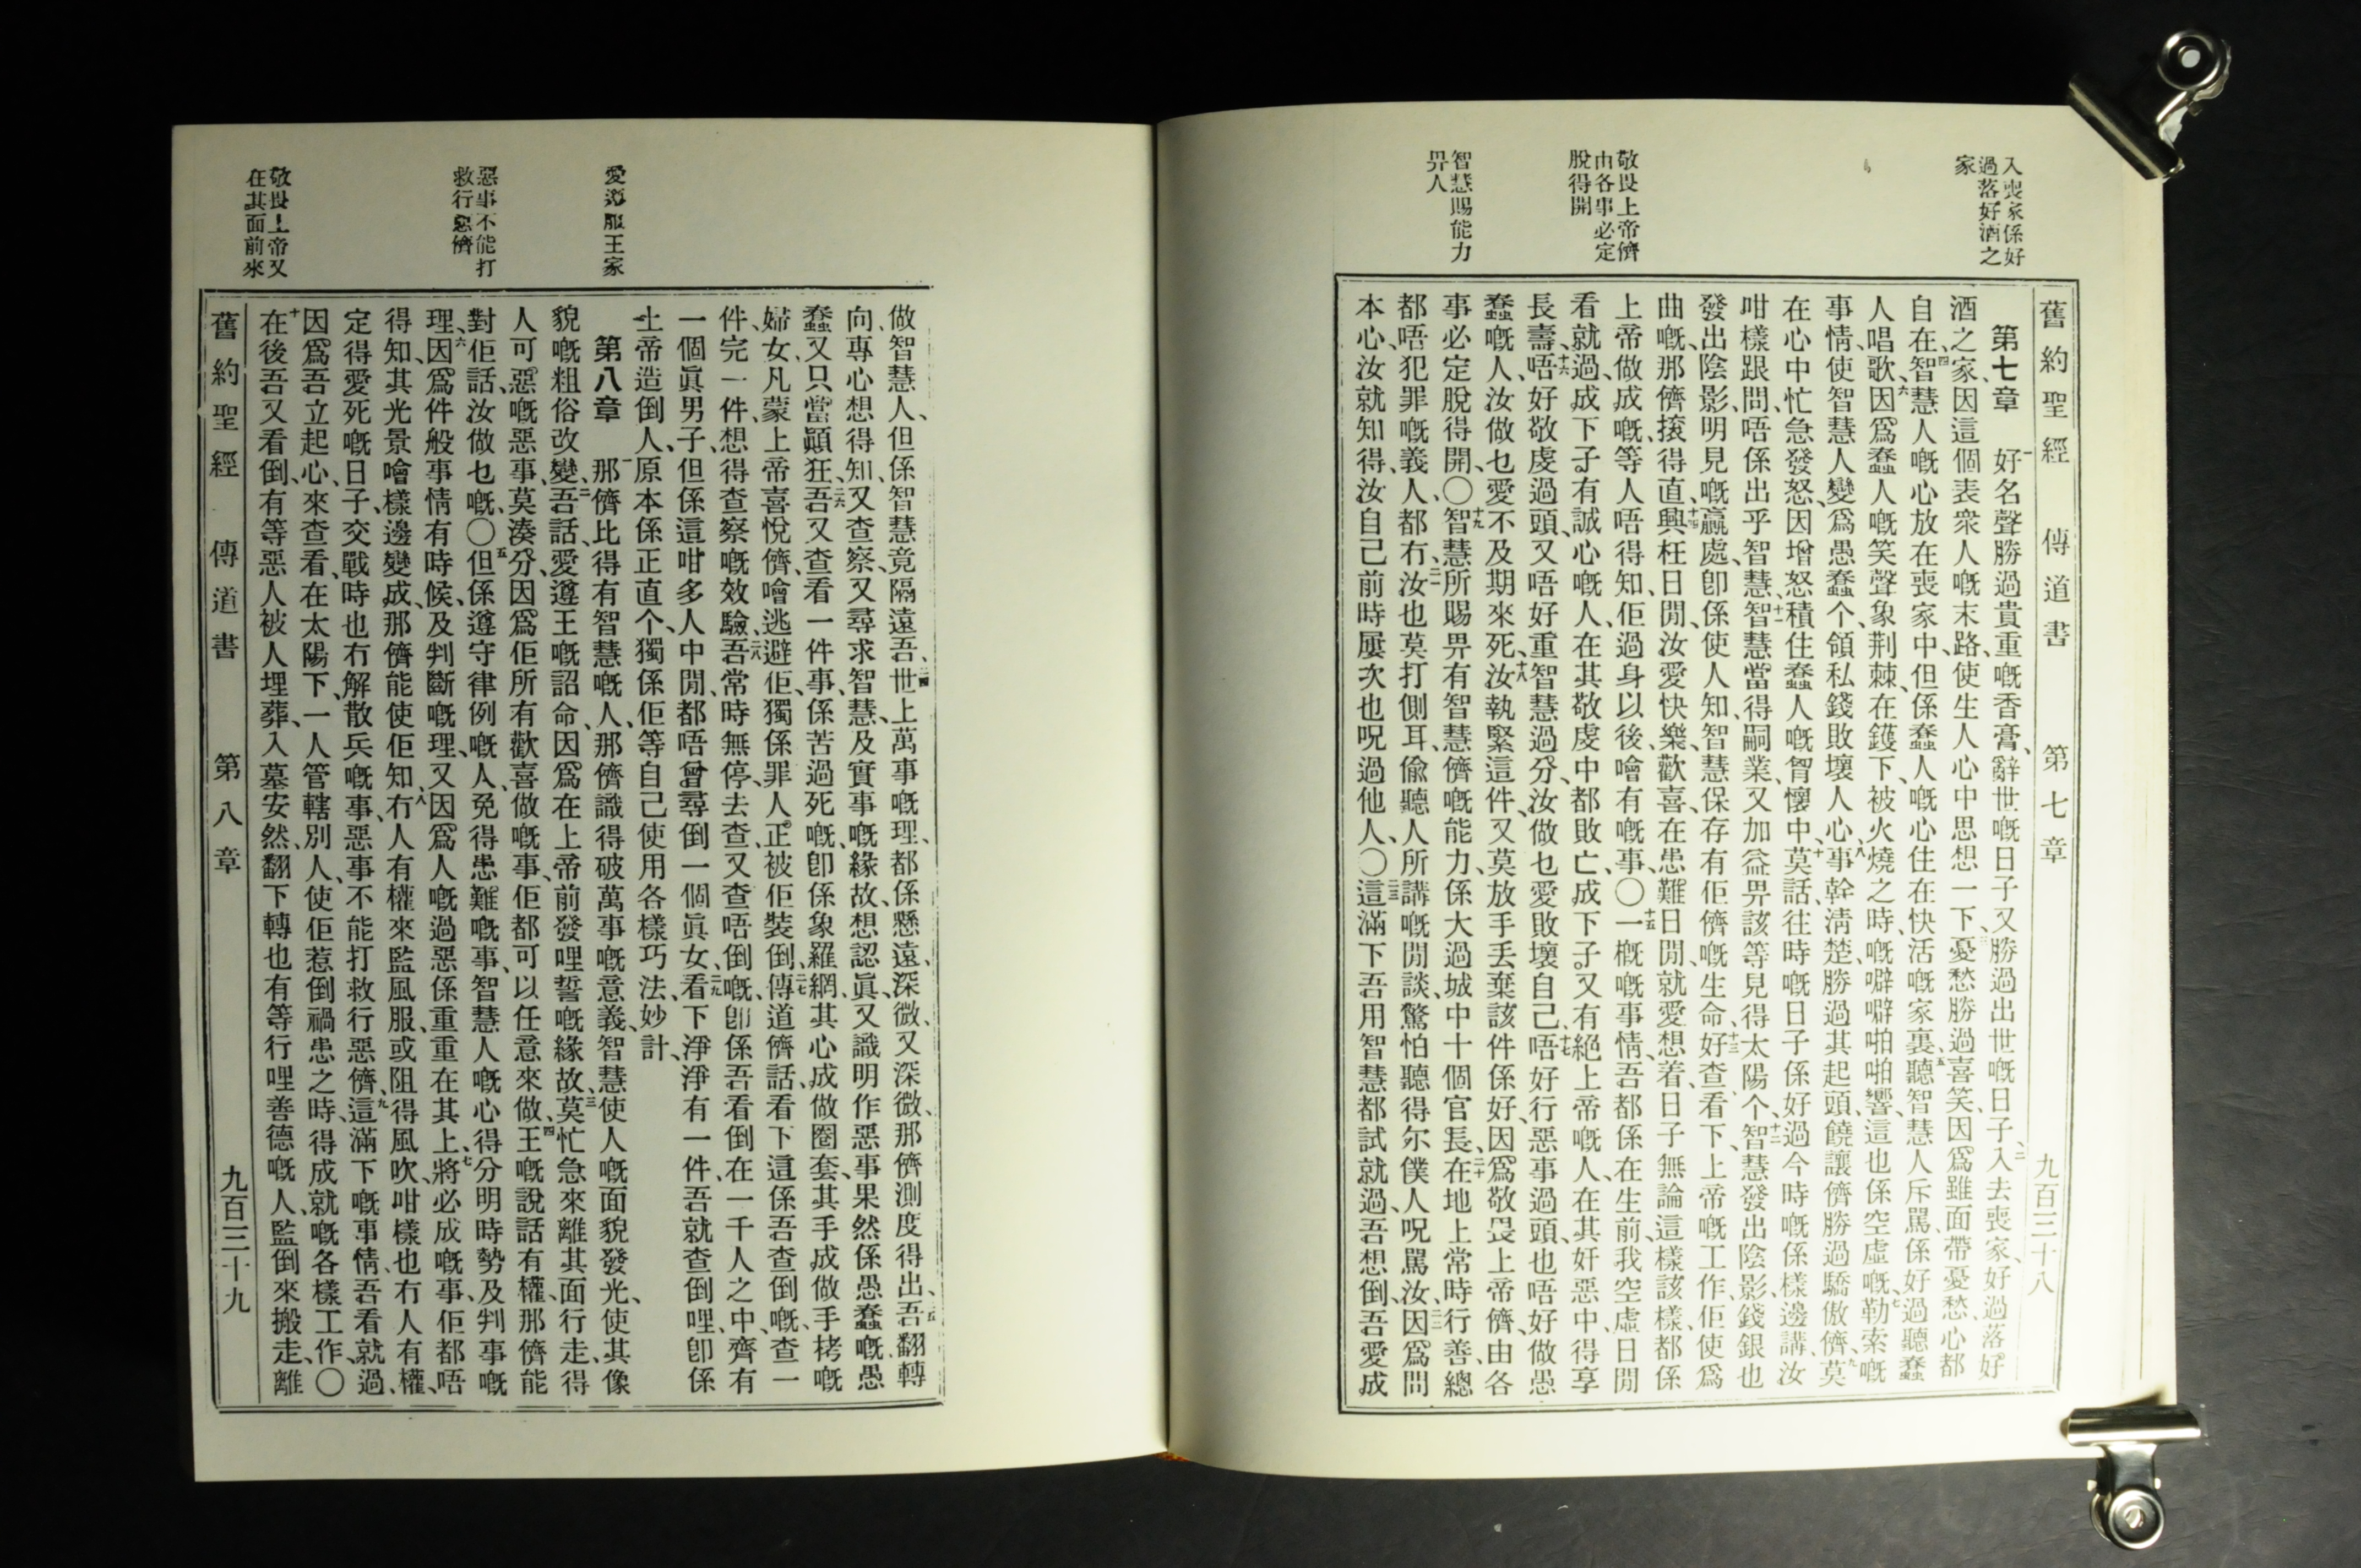 入喪家係好
過落好酒之
家
敬畏上帝儕
由各事必定
脫得開
智慧賜能力
畀人
舊約聖經　傳道書　第七章　九百三十八
第七章　一好名聲勝過貴重嘅香膏、辭世嘅日子又勝過出世嘅日子、二入去喪家、好過落好
酒之家、因這個表衆人嘅末路、使生人心中思想一下、三憂愁勝過喜笑、因爲雖面帶憂愁、心都
自在、四智慧人嘅心放在喪家中、但係蠢人嘅心住在快活嘅家裏、五聽智慧人斥罵、係好過聽蠢
人唱歌、六因爲蠢人嘅笑聲、象荆棘、在鑊下、被火燒之時、嘅噼噼啪啪響、這也係空虛嘅、七勒索嘅
事情、使智慧人變爲愚蠢个、領私錢敗壞人心、八事幹淸楚、勝過其起頭、饒讓儕勝過驕傲儕、九莫
在心中忙急發怒、因增怒積住蠢人嘅胷懷中、十莫話、往時嘅日子係好過今時嘅、係樣邊講、汝
咁樣跟問、唔係出乎智慧、十一智慧當得嗣業、又加益畀該等見得太陽个、十二智慧發出陰影、錢銀也
發出陰影、明見嘅贏處、卽係使人知、智慧保存有佢儕嘅生命、十三好查看下、上帝嘅工作、佢使爲
曲嘅、那儕㨘得直、十四興旺日閒、汝愛快樂、歡喜、在患難日閒、就愛想着、日子無論這樣該樣、都係
上帝做成嘅、等人唔得知、佢過身以後、噲有嘅事、〇十五一概嘅事情、吾都係在生前、我空虛日閒
看就過、成下子、有誠心嘅人、在其敬虔中都敗亡、成下子、又有絕上帝嘅人、在其奸惡中、得享
長壽、十六唔好敬虔過頭、又唔好重智慧過分、汝做乜愛敗壞自己、十七唔好行惡事過頭、也唔好做愚
蠢嘅人、汝做乜愛不及期來死、十八汝執緊這件、又莫放手丢棄該件、係好、因爲敬畏上帝儕、由各
事必定脫得開、〇十九智慧所賜畀有智慧儕嘅能力、係大過城中十個官長、二十在地上常時行善、總
都唔犯罪嘅義人、都冇、二一汝也莫打側耳、偸聽人所講嘅閒談、驚怕聽得尔僕人呪罵汝、二二因爲問
本心、汝就知得、汝自己前時屢次也呪過他人、〇二三這滿下吾用智慧都試就過、吾想倒、吾愛成
愛遵服王家
惡事不能打
救行惡儕
敬畏上帝又
在其面前來
做智慧人、但係智慧竟隔遠吾、二四世上萬事嘅理、都係懸遠、深微、又深微、那儕測度得出、二五吾翻轉
向、專心想得知、又查察、又尋求智慧、及實事嘅緣故、想認眞、又識明作惡事果然係愚蠢嘅、愚
蠢又只當顚狂、二六吾又查看一件事、係苦過死嘅、卽係象羅網、其心成做圈套、其手成做手栲嘅
婦女、凡蒙上帝喜悅儕、噲逃避佢、獨係罪人、正被佢裝倒、二七傳道儕話、看下這係吾查倒嘅、查一
件、完一件、想得查察嘅效驗、二八吾常時無停、去查、又查唔倒嘅、卽係吾看倒在一千人之中、齊有
一個眞男子、但係這咁多人中閒、都唔曾尋倒一個眞女、二九看下淨淨有一件、吾就查倒哩、卽係
上帝造倒人、原本係正直个、獨係佢等自己使用各樣巧法、妙計、
第八章　一那儕比得有智慧嘅人、那儕識得破萬事嘅意義、智慧使人嘅面貌發光、使其像
貌嘅粗俗改變、二吾話、愛遵王嘅詔命、因爲在上帝前發哩誓嘅緣故、三莫忙急來離其面行走、得
人可惡嘅惡事、莫湊分、因爲佢所有歡喜做嘅事、佢都可以任意來做、四王嘅說話有權、那儕能
對佢話、汝做乜嘅、〇五但係遵守律例嘅人、免得患難嘅事、智慧人嘅心得分明時勢及判事嘅
理、六因爲件般事情有時候、及判斷嘅理、又因爲人嘅過惡係重重在其上、七將必成嘅事、佢都唔
得知、其光景噲樣邊變成、那儕能使佢知、八冇人有權來監風服、或阻得風吹、咁樣也冇人有權、
定得愛死嘅日子、交戰時也冇解散兵嘅事、惡事不能打救行惡儕、九這滿下嘅事情、吾看就過、
因爲吾立起心、來查看、在太陽下、一人管轄別人、使佢惹倒禍患之時、得成就嘅各樣工作、〇
十在後吾又看倒、有等惡人被人埋葬、入墓安然、翻下轉也有等行哩善德嘅人、監倒來搬走、離
舊約聖經　傳道書　第八章　九百三十九